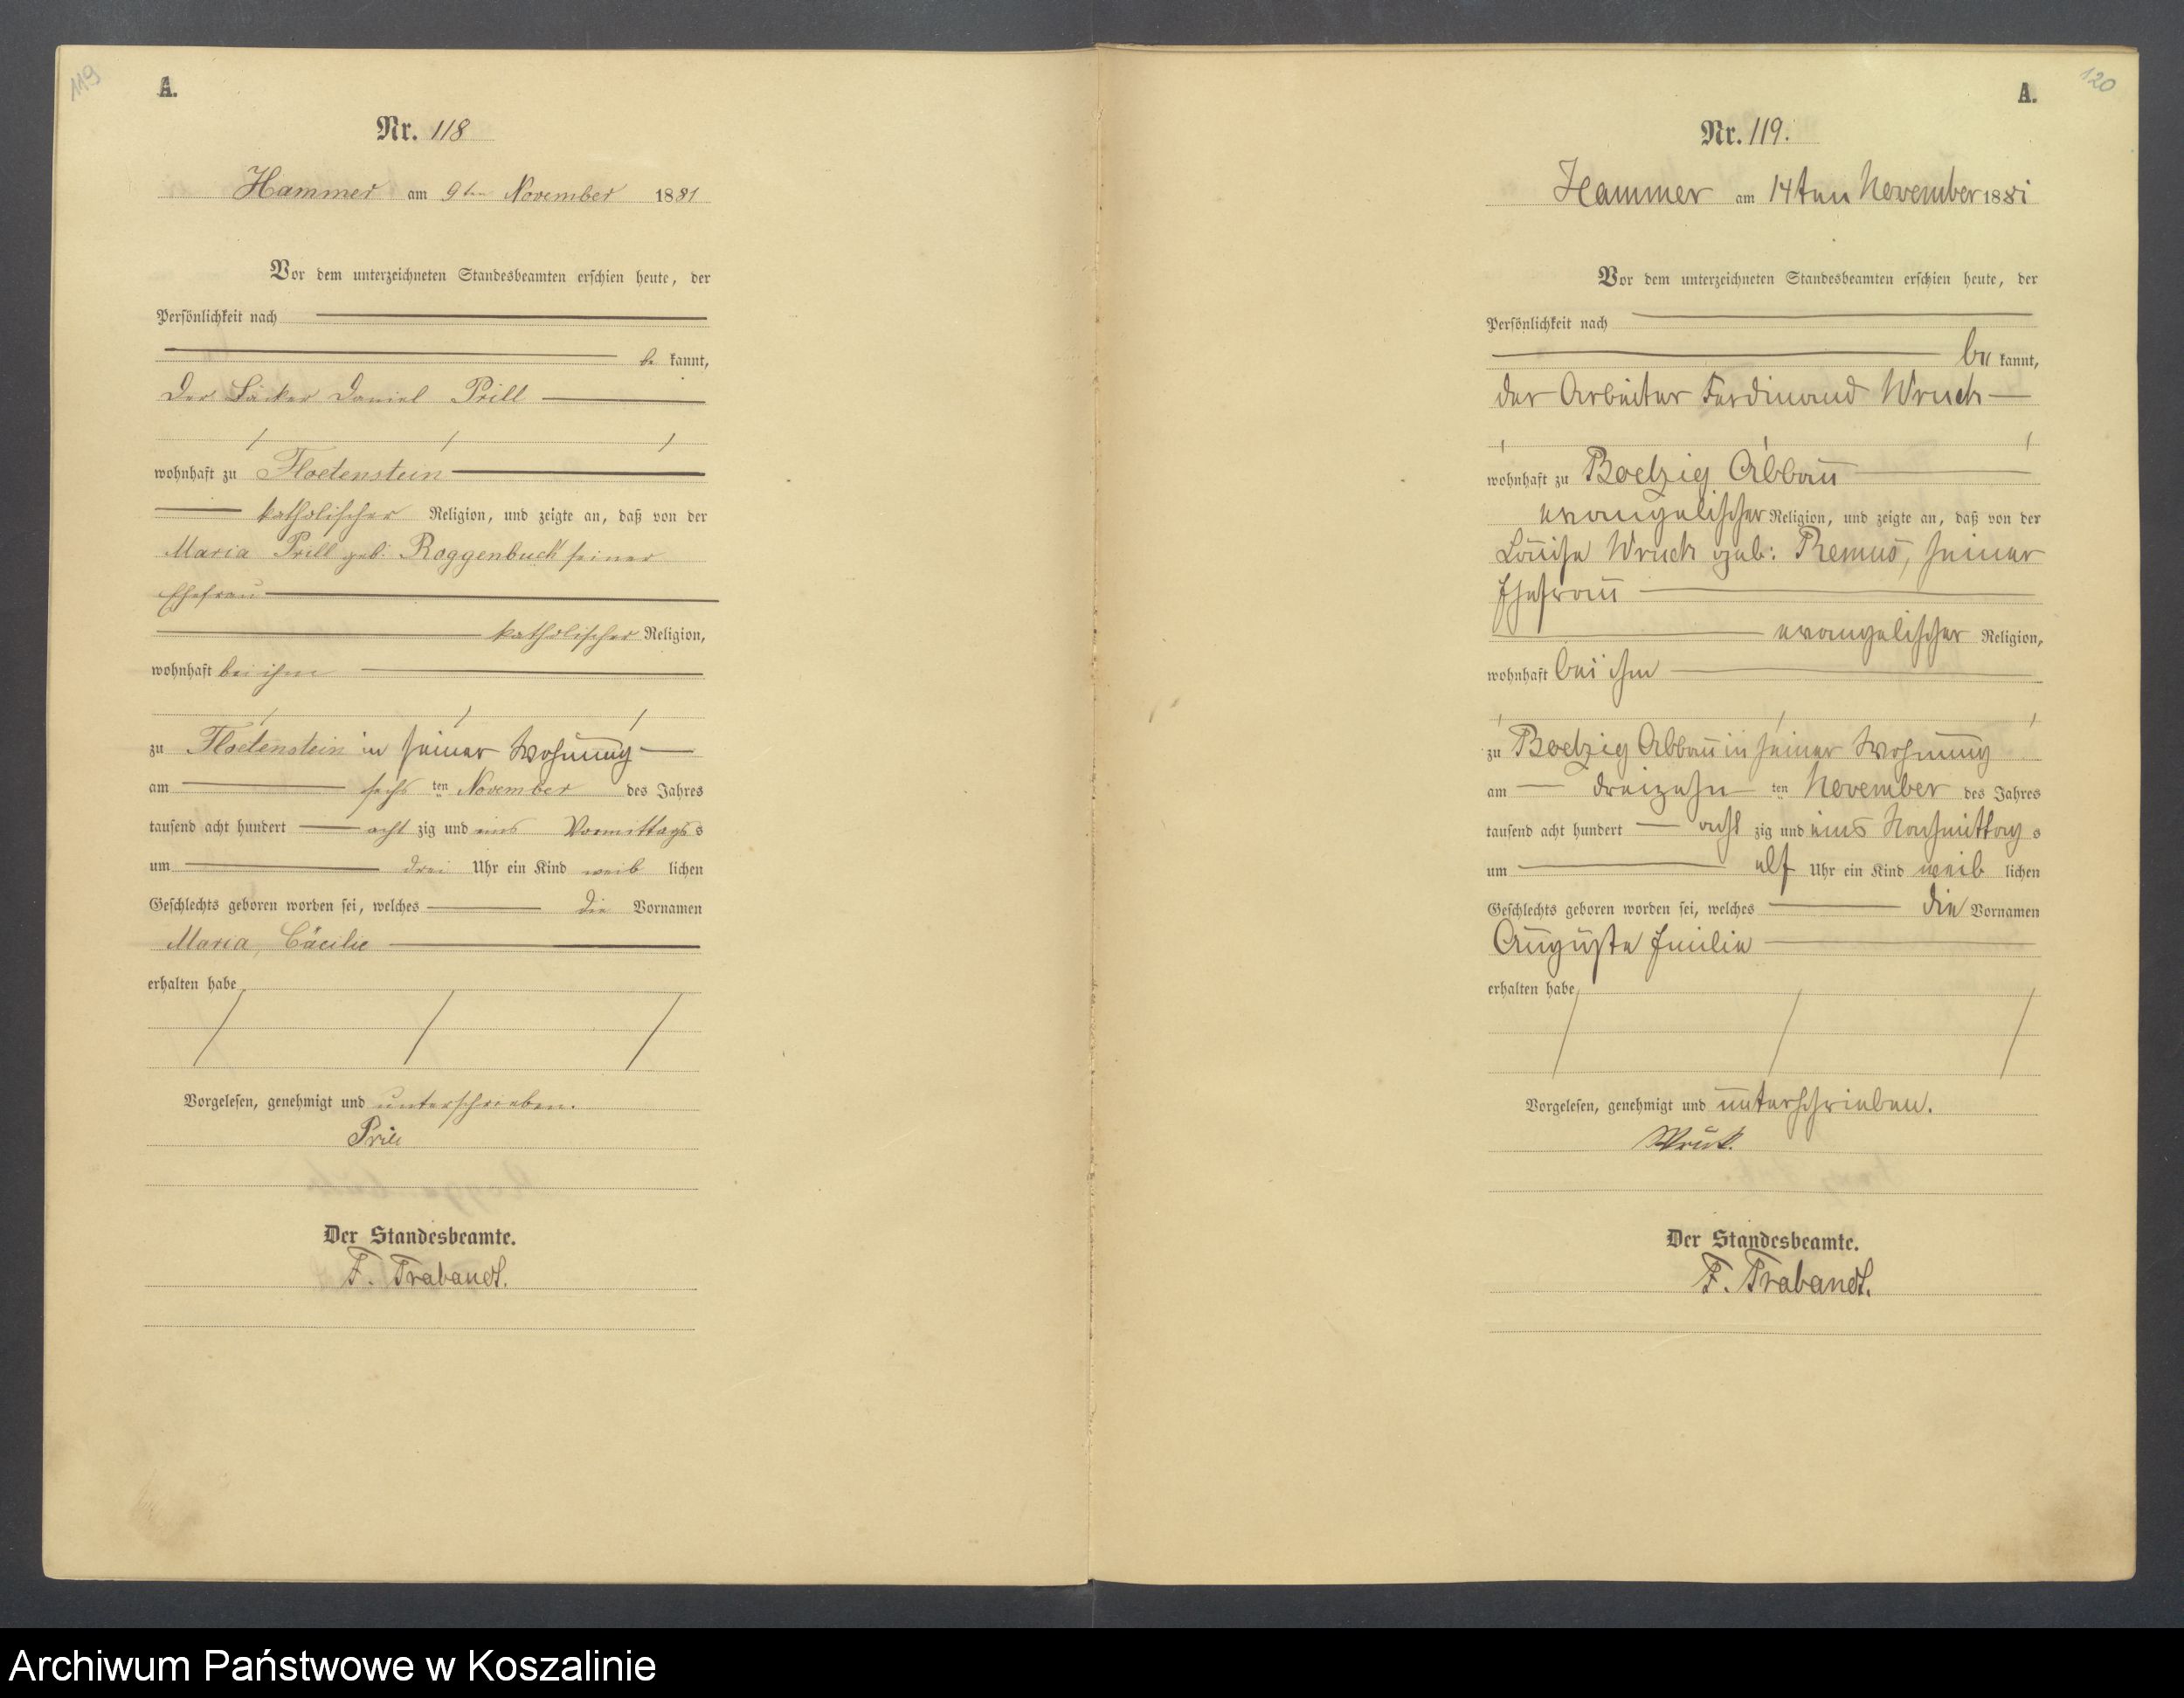 119
A.
Nr. 118
Hammer am 9ten November 1881
Vor dem unterzeichneten Standesbeamten erschien heute, der
Persönlichkeit nach
be kannt,
der Daniel Prill
wohnhaft zu Floetenstein
katholischer Religion, und zeigte an, daß von der
Maria Prill geb: Roggenbuck seiner
Ehefrau
katholischer Religion,
wohnhaft bei ihm
zu Floetenstein in seiner Wohnung
am sechs ten November des Jahres
tausend acht hundert acht zig und eins Vormittags s
um drei Uhr ein Kind weib lichen
Geschlechts geboren worden sei, welches die Vornamen
Maria, Cäcilie
erhalten habe
Vorgelesen, genehmigt und unterschrieben.
Prill
Der Standesbeamte.
F. Trabandt.
120
A.
Nr. 119.
Hammer am 14ten November 1881
Vor dem unterzeichneten Standesbeamten erschien heute, der
Persönlichkeit nach
be kannt,
der Arbeiter Ferdinand Wruck
wohnhaft zu Boelzig Abbau
evangelischer Religion, und zeigte an, daß von der
Louise Wruck geb: Remus, seiner
Ehefrau
evangelischer Religion,
wohnhaft bei ihm
zu Boelzig Abbau in seiner Wohnung
am dreizehn ten November des Jahres
tausend acht hundert acht zig und eins Nachmittag s
um elf Uhr ein Kind weib lichen
Geschlechts geboren worden sei, welches die Vornamen
Auguste Emilie
erhalten habe
Vorgelesen, genehmigt und unterschrieben.
Wruck.
Der Standesbeamte.
F. Trabandt.
Archiwum Państwowe w Koszalinie